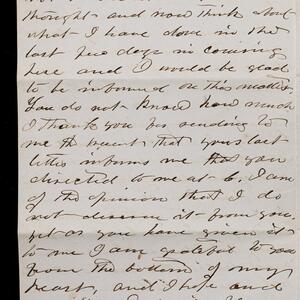 thought and now think about
what I have done in the
last few days in coming
here and I would be glad
to be informed on this matter.
You do not know how much
I thank you for sending to
me the that your last
letter informs me that you
directed to me at 6. I am
of the opinion that I do
not deserve it from you,
yet as you have given it
to me I am grateful to you
from the bottom of my
heart, and I hope and